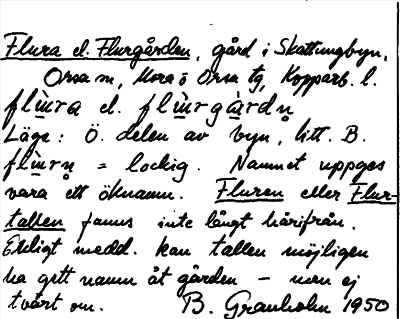 Flura el. Flurgården, gård i Skattungbyn,
Orsa sn, Mora o Orsa tg, Kopparb. l.
flùra el. flùrgàrdn̥
Läge: Ö. delen av byn, litt. B.
flùrn̥ = lockig. Namnet uppges
vara ett öknamn. Fluren eller Flur-
tallen fanns inte långt härifrån.
Enligt medd. kan tallen möjligen
ha gett namn åt gården – men ej
tvärt om. B. Granholm 1950